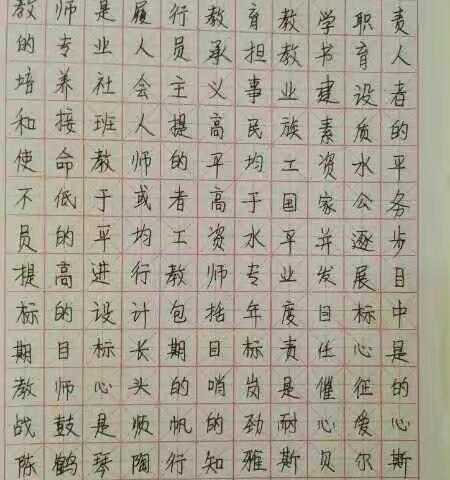 教师是履行教育教学职责
的专业人员承担教书育人
培养社会主义事业建设者
和接班人提高民族素质的
使命教师的平均工资水平
不低于或者高于国家公务
员的平均工资水平并逐步
提高进行教师专业发展目
标的设计包括年度目标中
期目标长期目标责任心是
教师心头的哨岗是催征的
战鼓是顺帆的劲耐心爱心
陈鹤琴陶行知雅斯贝尔斯